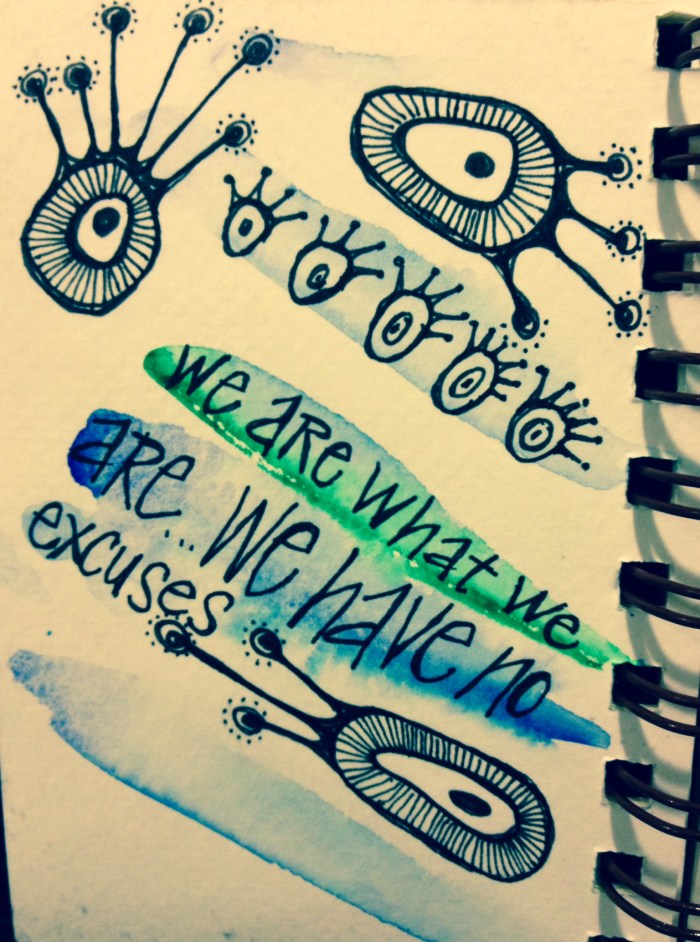 we are what we
are... we have no
excuses